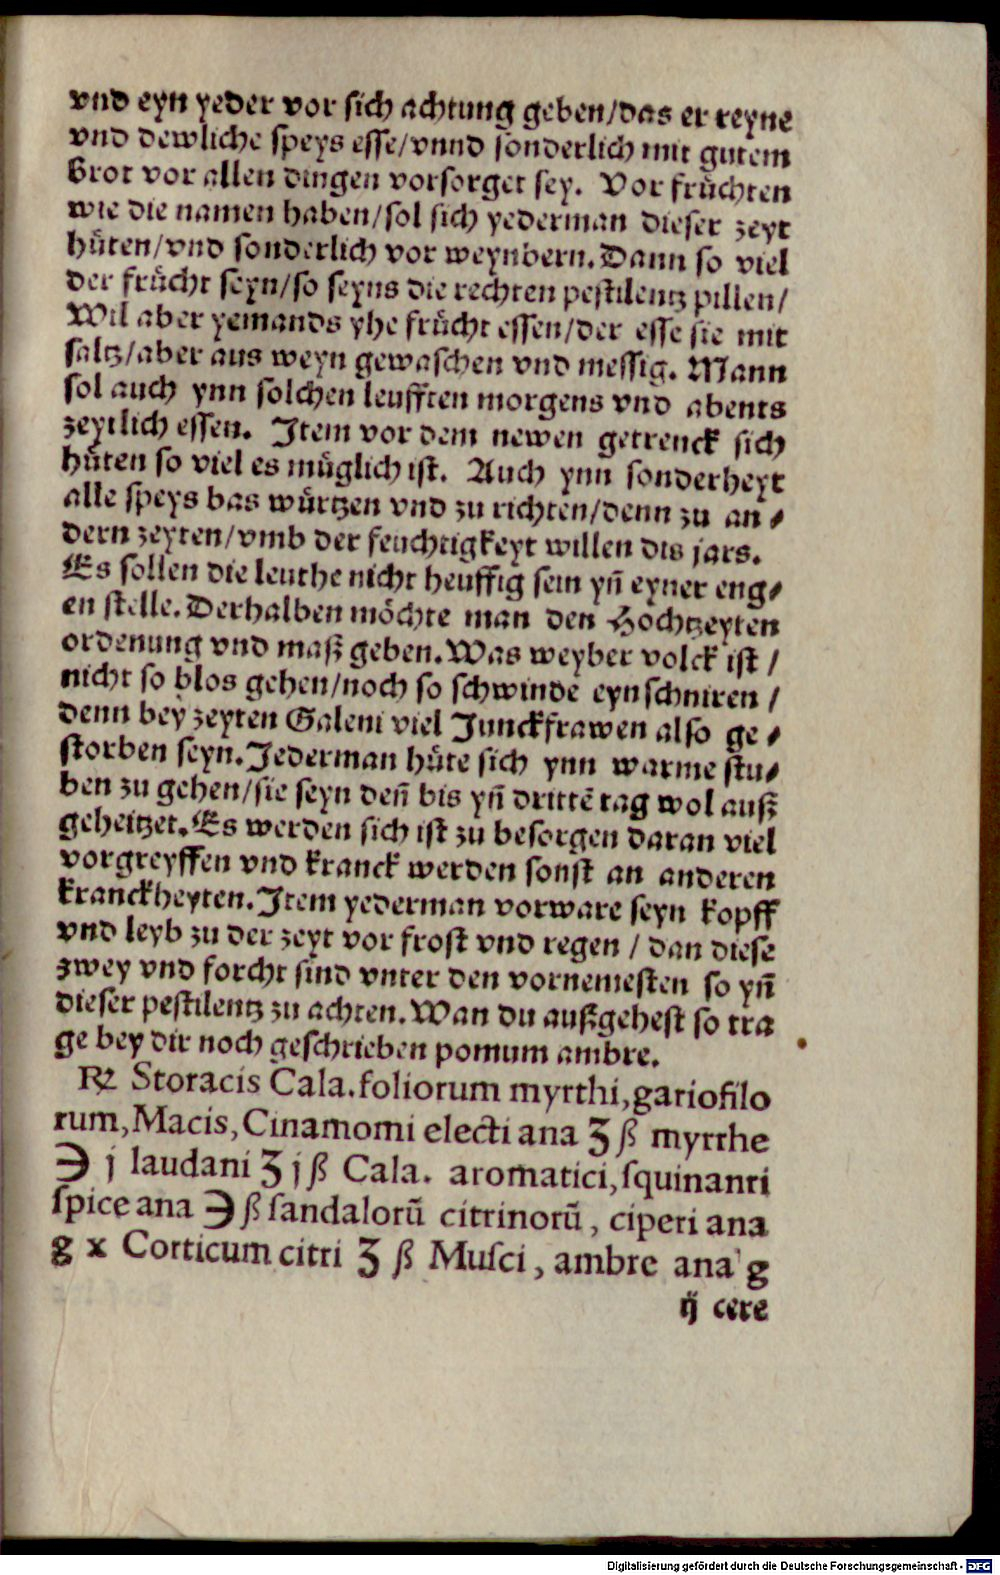 vnd eyn yeder vor sich achtung geben/das er reyne
vnd dewliche speys esse/vnnd sonderlich mit gutem
Brot vor allen dingen vorsorget sey. Vor frůchten
wie die namen haben/sol sich yederman dieser zeyt
hůten/vnd sonderlich vor weynbern. Dann so viel
der frůcht seyn/so seyns die rechten pestilentz pillen/
Wil aber yemands yhe frůcht essen/der esse sie mit
saltz/aber aus weyn gewaschen vnd messig. Mann
sol auch ynn solchen leufften morgens vnd abents
zeytlich essen. Item vor dem newen getrenck sich
hůten so viel es můglich ist. Auch ynn sonderheyt
alle speys bas wůrtzen vnd zu richten/denn zu an⸗
dern zeyten/vmb der feuchtigkeyt willen dis jars.
Es sollen die leuthe nicht heuffig sein yn̄ eyner eng⸗
en stelle. Derhalben mȯchte man den Hochtzeyten
ordenung vnd maß geben. Was weyber volck ist /
nicht so blos gehen/noch so schwinde eynschniren /
denn bey zeyten Galeni viel Junckfrawen also ge⸗
storben seyn. Jederman hůte sich ynn warme stu⸗
ben zu gehen/sie seyn den̄ bis yn̄ drittē tag wol auß
geheitzet. Es werden sich ist zu besorgen daran viel
vorgreyffen vnd kranck werden sonst an anderen
kranckheyten. Item yederman vorware seyn kopff
vnd leyb zu der zeyt vor frost vnd regen / dan diese
zwey vnd forcht sind vnter den vornemesten so yn̄
dieser pestilentz zu achten. Wan du außgehest so tra
ge bey dir noch geschrieben pomum ambre.
℞ Storacis Cala. foliorum myrthi, gariofilo
rum, Macis, Cinamomi electi ana ʒ ß myrrhe
℈ j laudani ʒ j ß Cala. aromatici, squinanti
spice ana ℈ ß sandalorū citrinorū, ciperi ana
g x Corticum citri ʒ ß Musci, ambre ana g
ij cere
Digitalisierung gefördert durch die Deutsche Forschungsgemeinschaft - DFG